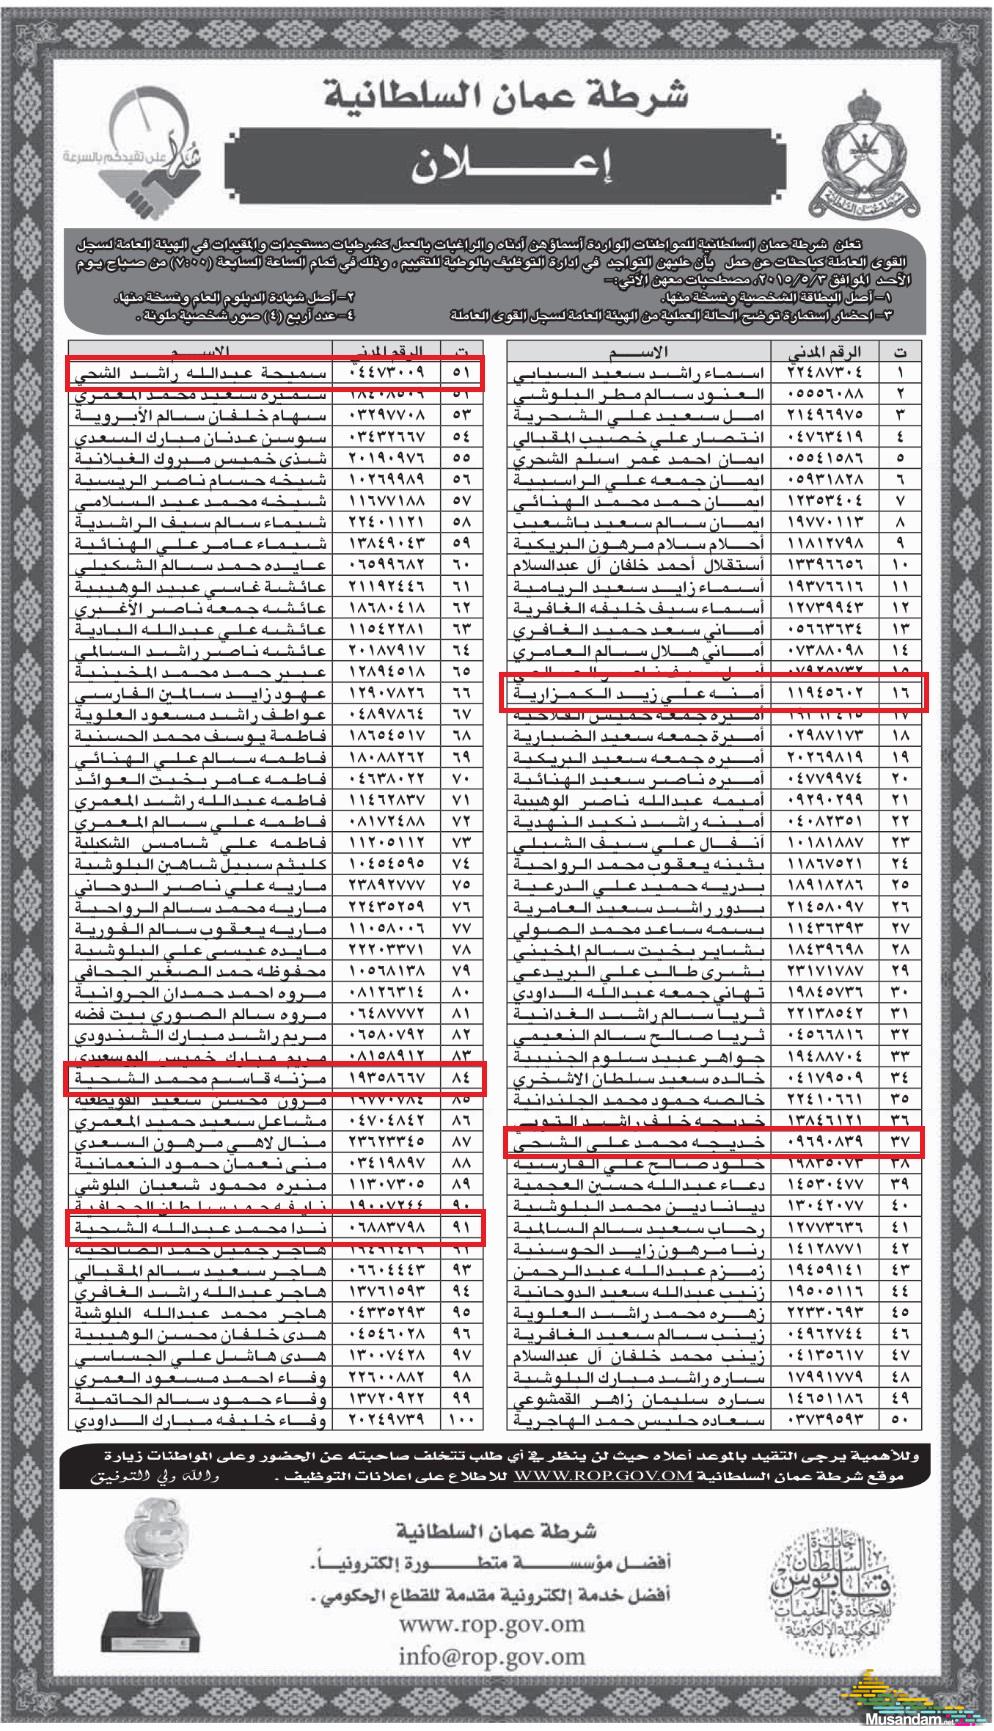 شرطة عمان السلطانية
إعلان
شُكراً على تقيدكم بالسرعة
شرطة عمان السلطانية
تعلن شرطة عمان السلطانية للمواطنات الواردة أسماؤهن أدناه والراغبات بالعمل كشرطيات مستجدات والمقيدات في الهيئة العامة لسجل
القوى العاملة كباحثات عن عمل بأن عليهن التواجد في إدارة التوظيف بالوطية للتقييم ، وذلك في تمام الساعة السابعة (٧:٠٠) من صباح يوم
الأحد الموافق ٢٠١٥/٥/٣، مصطحبات معهن الآتي:-
١- أصل البطاقة الشخصية ونسخة منها. ٢- أصل شهادة الدبلوم العام ونسخة منها.
٣- إحضار استمارة توضح الحالة العملية من الهيئة العامة لسجل القوى العاملة ٤- عدد أربع (٤) صور شخصية ملونة .
ت الرقم المدني الاسم
١ ٢٢٤٨٧٣٠٤ اسماء راشد سعيد السيابي
٢ ٠٥٥٥٦٠٨٨ العنود سالم مطر البلوشي
٣ ٢١٤٩٦٩٧٥ امل سعيد علي الشحرية
٤ ٠٤٧٦٣٤١٩ انتصار علي خصيب المقبالي
٥ ٠٥٥٤١٥٨٦ ايمان احمد عمر اسلم الشحري
٦ ٠٥٩٣١٨٢٨ ايمان جمعه علي الراسبية
٧ ١٢٣٥٣٤٠٤ ايمان حمد محمد الهنائي
٨ ١٩٧٧٠١١٣ ايمان سالم سعيد باشعيب
٩ ١١٨١٢٧٩٨ أحلام سلام مرهون البريكية
١٠ ١٣٣٩٦٦٥٦ أستقلال أحمد خلفان آل عبدالسلام
١١ ١٩٣٧٦٦١٦ أسماء زايد سعيد الريامية
١٢ ١٢٧٣٩٩٤٣ أسماء سيف خليفه الغافرية
١٣ ٠٥٦٦٣٦٣٤ أماني سعد حميد الغافري
١٤ ٠٧٣٨٨٠٩٨ أماني هلال سالم العامري
١٥ ٠٧٩٢٥٧٣٢
١٦ ١١٩٤٥٦٠٢ أمنه علي زيد الكمزارية
١٧ أميره جمعه خميس الفلاحية
١٨ ٠٢٩٨٧١٧٣ أميرة جمعه سعيد الضبارية
١٩ ٢٠٢٦٩٨١٩ أميره جمعه سعيد البريكية
٢٠ ٠٤٧٧٩٩٧٤ أميره ناصر سعيد الهنائية
٢١ ٠٩٢٩٠٢٩٩ أميمه عبدالله ناصر الوهيبية
٢٢ ٠٤٠٨٢٣٥١ أمينه راشد نكيد النهدية
٢٣ ١٠١٨١٨٨٧ أنفال علي سيف الشبلي
٢٤ ١١٨٦٧٥٢١ بثينه يعقوب محمد الرواحية
٢٥ ١٨٩١٨٢٨٦ بدريه حميد علي الدرعية
٢٦ ٢١٤٥٨٠٩٧ بدور راشد سعيد العامرية
٢٧ ١١٤٣٦٣٩٣ بسمه ساعد محمد الصولي
٢٨ ١٨٤٣٩٦٩٨ بشاير بخيت سالم المخيني
٢٩ ٢٣١٧١٧٨٧ بشرى طالب علي البريدعي
٣٠ ١٩٨٤٥٧٣٦ تهاني جمعه عبدالله الداودي
٣١ ٢٢١٣٨٥٤٢ ثريا سالم راشد الغدانية
٣٢ ٠٤٥٦٦٨١٦ ثريا صالح سالم النعيمي
٣٣ ١٩٤٨٨٧٠٤ جواهر عبيد سلوم الجنيبية
٣٤ ٠٤١٧٩٥٠٩ خالده سعيد سلطان الاشخري
٣٥ ٢٢٤١٠٦٦١ خالصه حمود محمد الجلندانية
٣٦ ١٣٨٤٦١٢١ خديجه خلف راشد التوبي
٣٧ ٠٩٦٩٠٨٣٩ خديجه محمد علي الشحي
٣٨ ١٩٨٣٥٠٧٣ خلود صالح علي الفارسية
٣٩ ١٤٥٣٠٤٧٧ دعاء عبدالله حسين العجمية
٤٠ ١٣٠٤٢٠٧٧ ديانا دين محمد البلوشية
٤١ ١٢٧٧٣٦٣٦ رحاب سعيد سالم السالمية
٤٢ ١٤١٢٨٧٧١ رنا مرهون زايد الحوسنية
٤٣ ١٩٤٥٩١٤١ زمزم عبدالله عبدالرحمن
٤٤ ١٩٥٠٥١١٦ زنيب عبدالله سعيد الدوحانية
٤٥ ٢٢٣٣٠٦٩٣ زهره محمد راشد العلوية
٤٦ ٠٤٩٦٢٧٤٤ زينب سالم سعيد الغافرية
٤٧ ٠٤١٣٥٦١٧ زينب محمد خلفان آل عبدالسلام
٤٨ ١٧٩٩١٧٧٩ ساره راشد مبارك البلوشية
٤٩ ١٤٦٥١١٨٦ ساره سليمان زاهر القمشوعي
٥٠ ٠٣٧٣٩٥٩٣ سعاده حليس حمد الهاجرية
ت الرقم المدني الاسم
٥١ ٠٤٤٧٣٠٠٩ سميحة عبدالله راشد الشحي
سميره سعيد محمد المعمري
٥٣ ٠٣٢٩٧٧٠٨ سهام خلفان سالم الأبروية
٥٤ ٠٣٤٣٢٦٦٧ سوسن عدنان مبارك السعدي
٥٥ ٢٠١٩٠٩٧٦ شذى خميس مبروك الغيلانية
٥٦ ١٠٢٦٩٩٨٩ شيخه حسام ناصر الريسية
٥٧ ١١٦٧٧١٨٨ شيخه محمد عبد السلامي
٥٨ ٢٢٤٠١١٢١ شيماء سالم سيف الراشدية
٥٩ ١٣٨٤٩٠٤٣ شيماء عامر علي الهنائية
٦٠ ٠٦٥٩٩٦٨٢ عايده حمد سالم الشكيلي
٦١ ٢١١٩٢٤٤٦ عائشة غاسي عبيد الوهيبية
٦٢ ١٨٦٨٠٤١٨ عائشه جمعه ناصر الأغبري
٦٣ ١١٥٤٢٢٨١ عائشه علي عبدالله البادية
٦٤ ٢٠١٨٧٩١٧ عائشه ناصر راشد السالمي
٦٥ ١٢٨٩٤٥١٨ عبير حمد محمد المخينية
٦٦ ١٢٩٠٧٨٢٦ عهود زايد سالمين الفارسي
٦٧ ٠٤٨٩٧٨٦٤ عواطف راشد مسعود العلوية
٦٨ ١٨٦٥٤٥١٧ فاطمة يوسف محمد الحسنية
٦٩ ١٨٠٨٨٢٦٢ فاطمه سالم علي الهنائي
٧٠ ٠٤٦٣٨٠٢٢ فاطمه عامر بخيت العوائد
٧١ ١١٤٦٢٨٣٧ فاطمه عبدالله راشد المعمري
٧٢ ٠٨١٧٢٤٨٨ فاطمه علي سالم المعمري
٧٣ ١١٢٠٥١١٢ فاطمه علي شامس الشكيلية
٧٤ ١٠٤٥٤٥٩٥ كليثم سبيل شاهين البلوشية
٧٥ ٢٣٨٩٢٧٧٧ ماريه علي ناصر الدوحاني
٧٦ ٢٢٤٣٥٢٥٩ ماريه محمد سالم الرواحية
٧٧ ١١٠٥٨٠٠٦ ماريه يعقوب سالم الفورية
٧٨ ٢٢٢٠٣٣٧١ مايده عيسى علي البلوشية
٧٩ ١٠٥٦٨١٣٨ محفوظه حمد الصغير الجحافي
٨٠ ٠٨١٢٦٣١٤ مروه احمد حمدان الجروانية
٨١ ٠٦٤٨٧٧٧٢ مروه سالم الصوري بيت فضه
٨٢ ٠٦٥٨٠٧٩٢ مريم راشد مبارك الشندودي
٨٣ ٠٨١٥٨٩١٢ مريم مبارك خميس البوسعيدي
٨٤ ١٩٣٥٨٦٦٧ مزنه قاسم محمد الشحية
٨٥ ١٦٧٧٠٧٨٤ مزون محسن سعيد القويطعية
٨٦ ٠٤٧٠٤٨٤٢ مشاعل سعيد حميد المعمري
٨٧ ٢٣٦٢٣٣٤٥ منال لاهي مرهون السعدي
٨٨ ٠٣٤١٩٨٩٧ منى نعمان حمود النعمانية
٨٩ ١١٣٠٧٣٠٥ منيره محمود شعبان البلوشي
٩٠ ١٩٠٠٧٢٤٤
٩١ ٠٦٨٨٣٧٩٨ ندا محمد عبدالله الشحية
هاجر جميل حمد الصالحية
٩٣ ٠٦٦٠٤٤٤٣ هاجر سعيد سالم المقبالي
٩٤ ١٣٧٦١٥٩٣ هاجر عبدالله راشد الغافري
٩٥ ٠٤٣٣٥٢٩٣ هاجر محمد عبدالله البلوشية
٩٦ ٠٤٥٤٦٠٢٨ هدى خلفان محسن الوهيبية
٩٧ ١٣٠٠٧٤٢٨ هدى هاشل علي الجساسي
٩٨ ٢٢٦٠٠٨٨٢ وفاء احمد مسعود العمري
٩٩ ١٣٧٢٠٩٢٢ وفاء حمود سالم الحاتمية
١٠٠ ٢٠٢٤٩٧٣٩ وفاء خليفه مبارك الداودي
وللأهمية يرجى التقيد بالموعد أعلاه حيث لن ينظر في أي طلب تتخلف صاحبته عن الحضور وعلى المواطنات زيارة
موقع شرطة عمان السلطانية WWW.ROP.GOV.OM للاطلاع على اعلانات التوظيف . والله ولي التوفيق
شرطة عمان السلطانية
أفضل مؤسسة متطورة إلكترونياً.
أفضل خدمة إلكترونية مقدمة للقطاع الحكومي .
www.rop.gov.om
info@rop.gov.om
جائزة
السلطان
قابوس
للإجادة في الخدمات
الحكومية الإلكترونية
Musandam.net